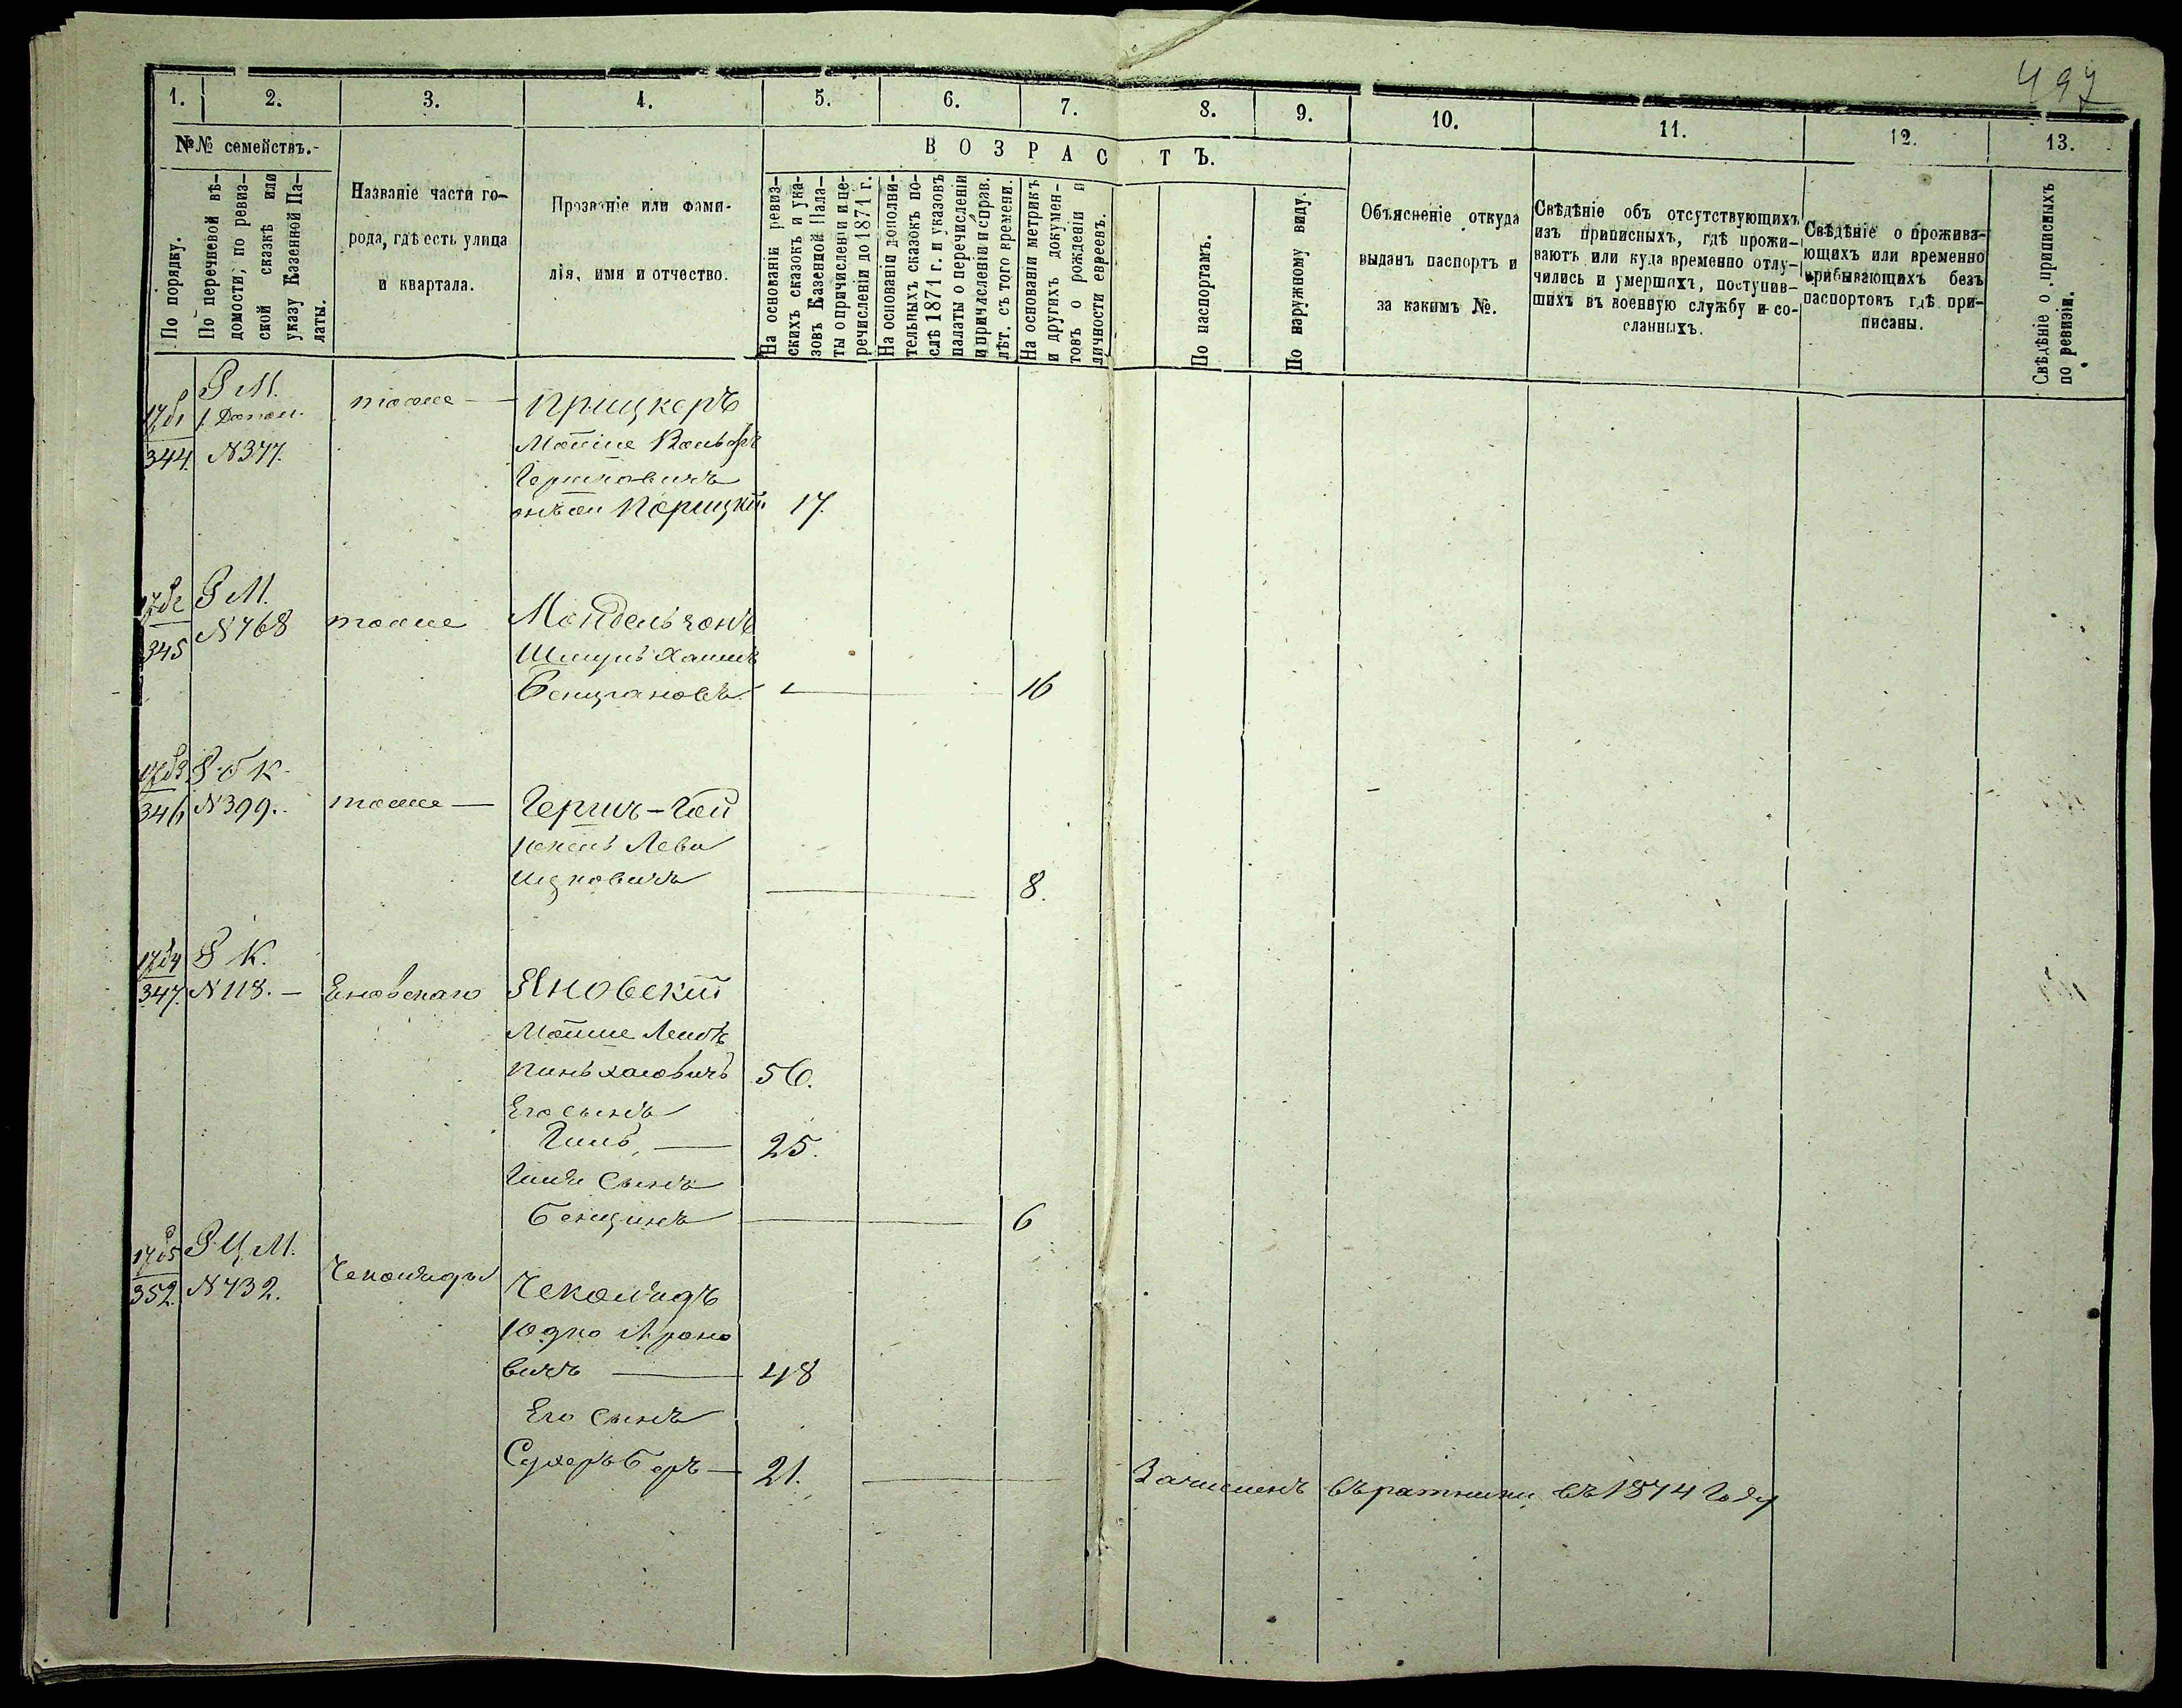 497
1. 2. 3. 4. 5. 6. 7. 8. 9. 10. 11. 12. 13.
№№ семействъ.
По порядку.
По перечневой вѣ-
домости, по ревиз-
ской сказкѣ или
указу Казенной Па-
латы.
Названіе части го-
рода, гдѣ есть улица
и квартала.
Прозваніе или фами-
лія, имя и отчество.
ВОЗРАСТЪ.
На основаніи ревиз-
скихъ сказокъ и ука-
зовъ Казенной Пала-
ты о причисленіи и пе-
речисленіи до 1871 г.
На основаніи дополни-
тельныхъ сказокъ по-
слѣ 1871 г. и указовъ
палаты о перечисленіи
и причисленіи и справ.
лѣт. съ того времени.
На основаніи метрикъ
и другихъ докумен-
товъ о рожденіи и
личности евреевъ.
По паспортамъ.
По наружному виду.
Объясненіе откуда
выданъ паспортъ и
за какимъ №.
Свѣдѣніе объ отсутствующихъ
изъ приписныхъ, гдѣ прожи-
ваютъ или куда временно отлу-
чились и умершихъ, поступив-
шихъ въ военную службу и со-
сланныхъ.
Свѣдѣніе о прожива-
ющихъ или временно
прибывающихъ безъ
паспортовъ гдѣ при-
писаны.
Свѣдѣніе о приписныхъ
по ревизіи.
Р М.
344 N 377.
тоже — Прицкеръ
Мовше Вольфъ
Гершковичъ
онъ же Порицкій 17.
Р М.
345 N 768 тоже Мандельчонъ
Шмуль Хаимъ
Бенціановъ — 16
Р. б К.
346 N 399. тоже — Гершъ-Гой
Іокель Лейви
Ицковичъ — 8.
Р К.
347. N 118. — Еновскаго Яновскій
Мовше Лейбъ
Пиньхасовичъ 56.
Его сынъ
Гиль, — 25.
Гиля сынъ
Бенціинъ — 6
Р. Ц. М.
352. N 732. Чекомида Чекомидъ
Юдко Ароно
вичъ — 48
Его сынъ
Сухеръ Беръ — 21. — Зачисленъ въ ратники въ 1874 году